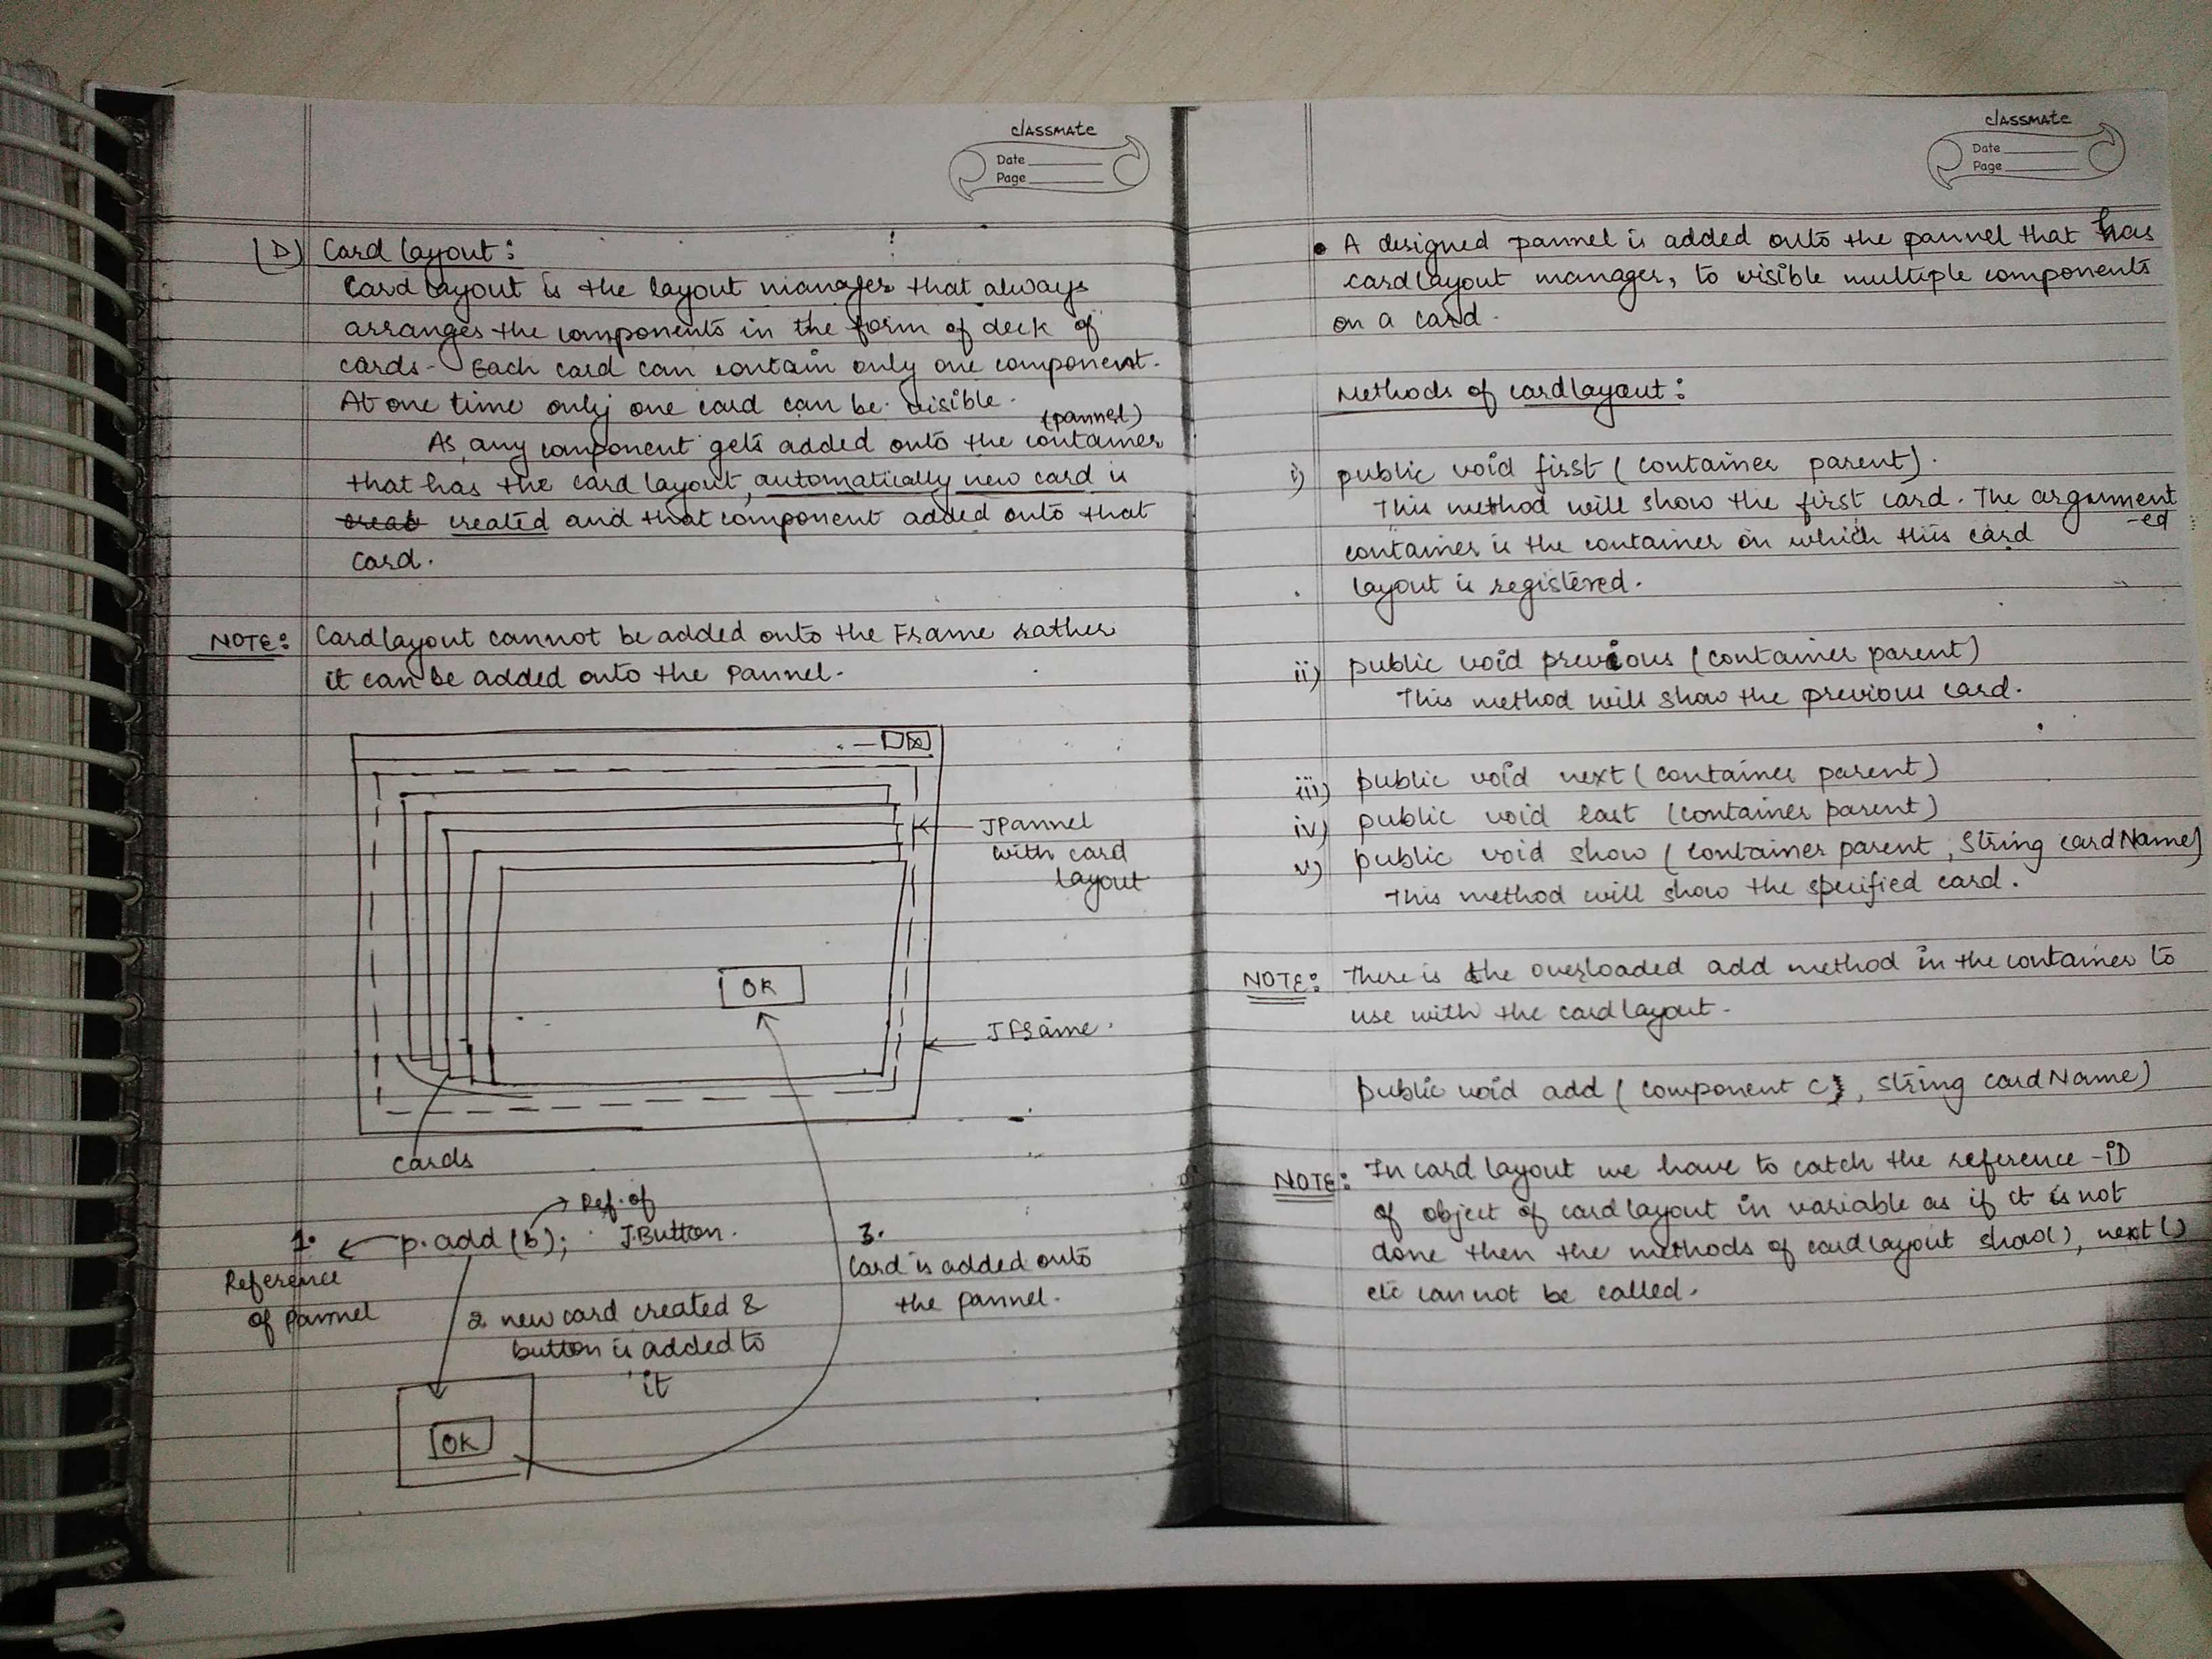 classmate
Date
Page
(D) Card layout:
Card layout is the layout manager that always
arranges the components in the form of deck of
cards. Each card can contain only one component.
At one time only one card can be visible.
(pannel)
As any component gets added onto the container
that has the card layout, automatically new card is
creat created and that component added onto that
card.
NOTE: Cardlayout cannot be added onto the Frame rather
it can be added onto the Pannel.
JPannel
with card
layout
OK
JFrame.
Cards
Ref. of
1. p.add(b); J.Button.
Reference
of pannel
2. new card created &
button is added to
it
3.
Card is added onto
the pannel.
OK
classmate
Date
Page
• A designed pannel is added onto the pannel that has
cardlayout manager, to visible multiple components
on a card.
Methods of cardlayout:
i) public void first (container parent).
This method will show the first card. The argument
-ed
container is the container on which this card
layout is registered.
ii) public void previous (container parent)
This method will show the previous card.
iii) public void next (container parent)
iv) public void last (container parent)
v) public void show (container parent, String cardName)
This method will show the specified card.
NOTE: There is the overloaded add method in the container to
use with the cardlayout.
public void add (component c, string cardName)
NOTE: In card layout we have to catch the reference-iD
of object of cardlayout in variable as if it is not
done then the methods of cardlayout show(), next()
etc cannot be called.